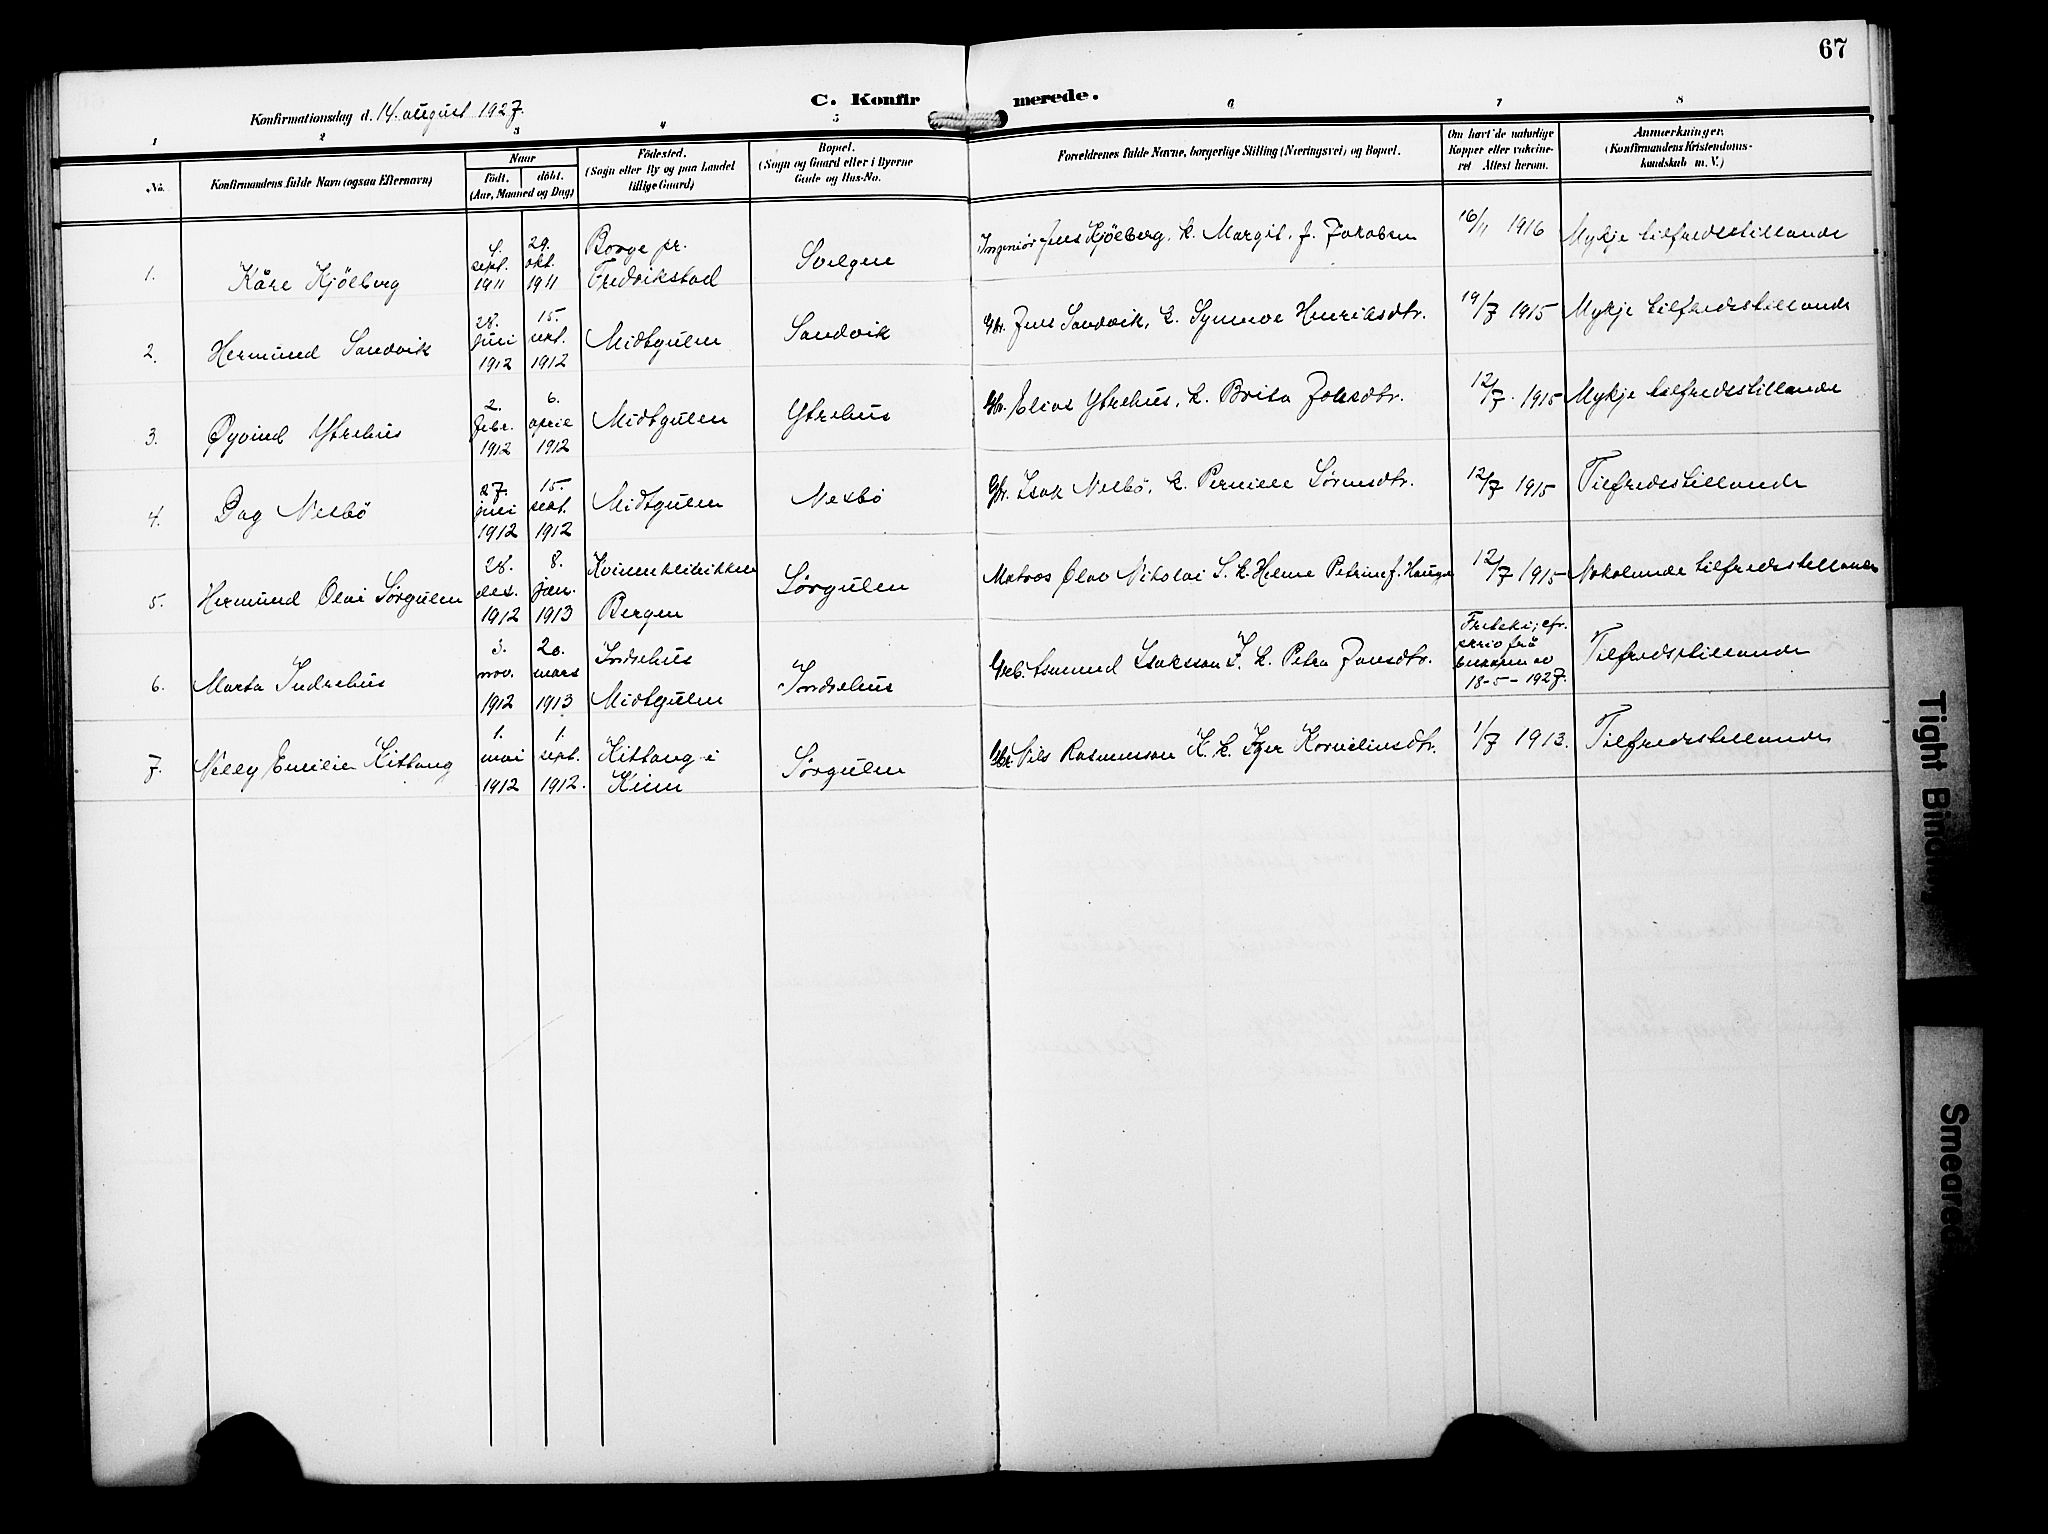 67
C. Konfirmerede.
Konfirmationsdag d. 14. august 1927.
1 2 3 4 5 6 7 8
No.
Konfirmandens fulde Navn (ogsaa Efternavn)
Naar
födt. döbt.
(Aar, Maaned og Dag)
Födested.
(Sogn eller By og paa Landet
tillige Gaard)
Bopæl.
(Sogn og Gaard eller i Byerne
Gade og Hus-No.
Forældrenes fulde Navne, borgerlige Stilling (Næringsvei) og Bopæl.
Om havt de naturlige
Kopper eller vakcine-
ret Attest herom.
Anmærkninger.
(Konfirmandens Kristendoms-
kundskab m. V.)
1. Kåre Kjölberg
4. sept. 1911
29. okt. 1911
Borge pr. Fredrikstad
Svelgen
Ingeniör Jens Kjölberg, k. Margit, f. Jakobsen
16/11 1916
Mykje tilfredsstillande
2. Hermund Sandvik
28. juli 1912
15. sept. 1912
Midtgulen
Sandvik
Gbr. Jens Sandvik, k. Synneve Henriksdtr.
19/7 1915
Mykje tilfredsstillande
3. Øyvind Ytrehus
2. febr. 1912
6. april 1912
Midtgulen
Ytrehus
Gbr. Elias Ytrehus, k. Brita
12/7. 1915
Mykje tilfredsstillande
4. Dag Nesbö
27. juli 1912
15. sept. 1912
Midtgulen
Nesbö
Gbr. Isak Nesbö, k. Pernille Sørensdtr.
12/7 1915
Tilfredsstillande
5. Hermund Olai Sørgulen
28. des. 1912
8. jan. 1913
Kvinneklinikken Bergen
Sørgulen
Matros Olav Nikolai S. k. Helene Petrine f. Hauge
12/7 1915
Nokolunde tilfredsstillande
6. Marta Indrehus
3. nov. 1912
20. mars 1913
Indrehus Midtgulen
Indrehus
Isaksson I. k. Petra Jonsdtr.
18-5-1927.
Tilfredsstillande
7. Nelly Emilie Kittang
1. mai 1912
1. sept. 1912.
Kittang i Kinn
Sørgulen
Gbr. Nils Rasmusson K. k. Korneliusdtr.
1/7 1913.
Tilfredsstillande
Tight Bind
Smeared